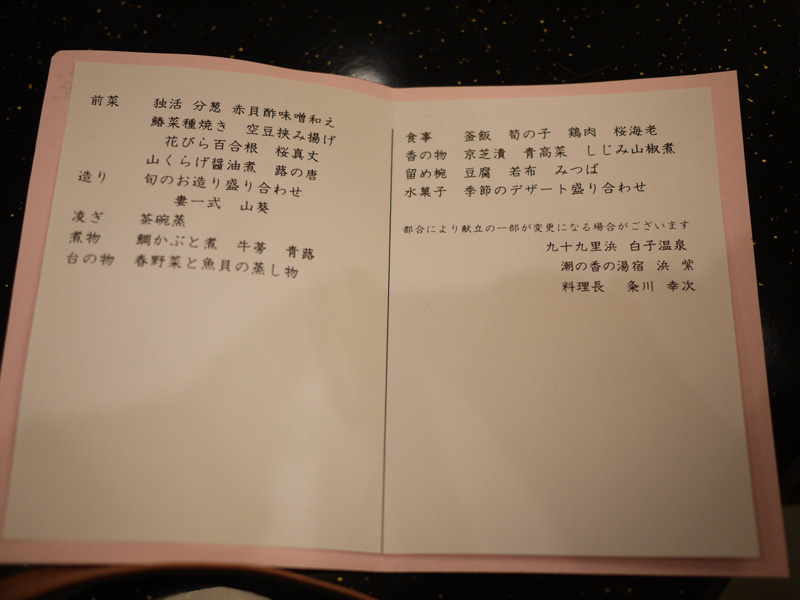 前菜 独活 分葱 赤貝酢味噌和え
鰆菜種焼き 空豆挟み揚げ
花びら百合根 桜真丈
山くらげ醤油煮 蕗の唐
造り 旬のお造り盛り合わせ
妻一式 山葵
凌ぎ 茶碗蒸
煮物 鯛かぶと煮 牛蒡 青蕗
台の物 春野菜と魚貝の蒸し物
食事 釜飯 筍の子 鶏肉 桜海老
香の物 京芝漬 青高菜 しじみ山椒煮
留め椀 豆腐 若布 みつば
水菓子 季節のデザート盛り合わせ
都合により献立の一部が変更になる場合がございます
九十九里浜 白子温泉
潮の香の湯宿 浜 紫
料理長 粂川 幸次